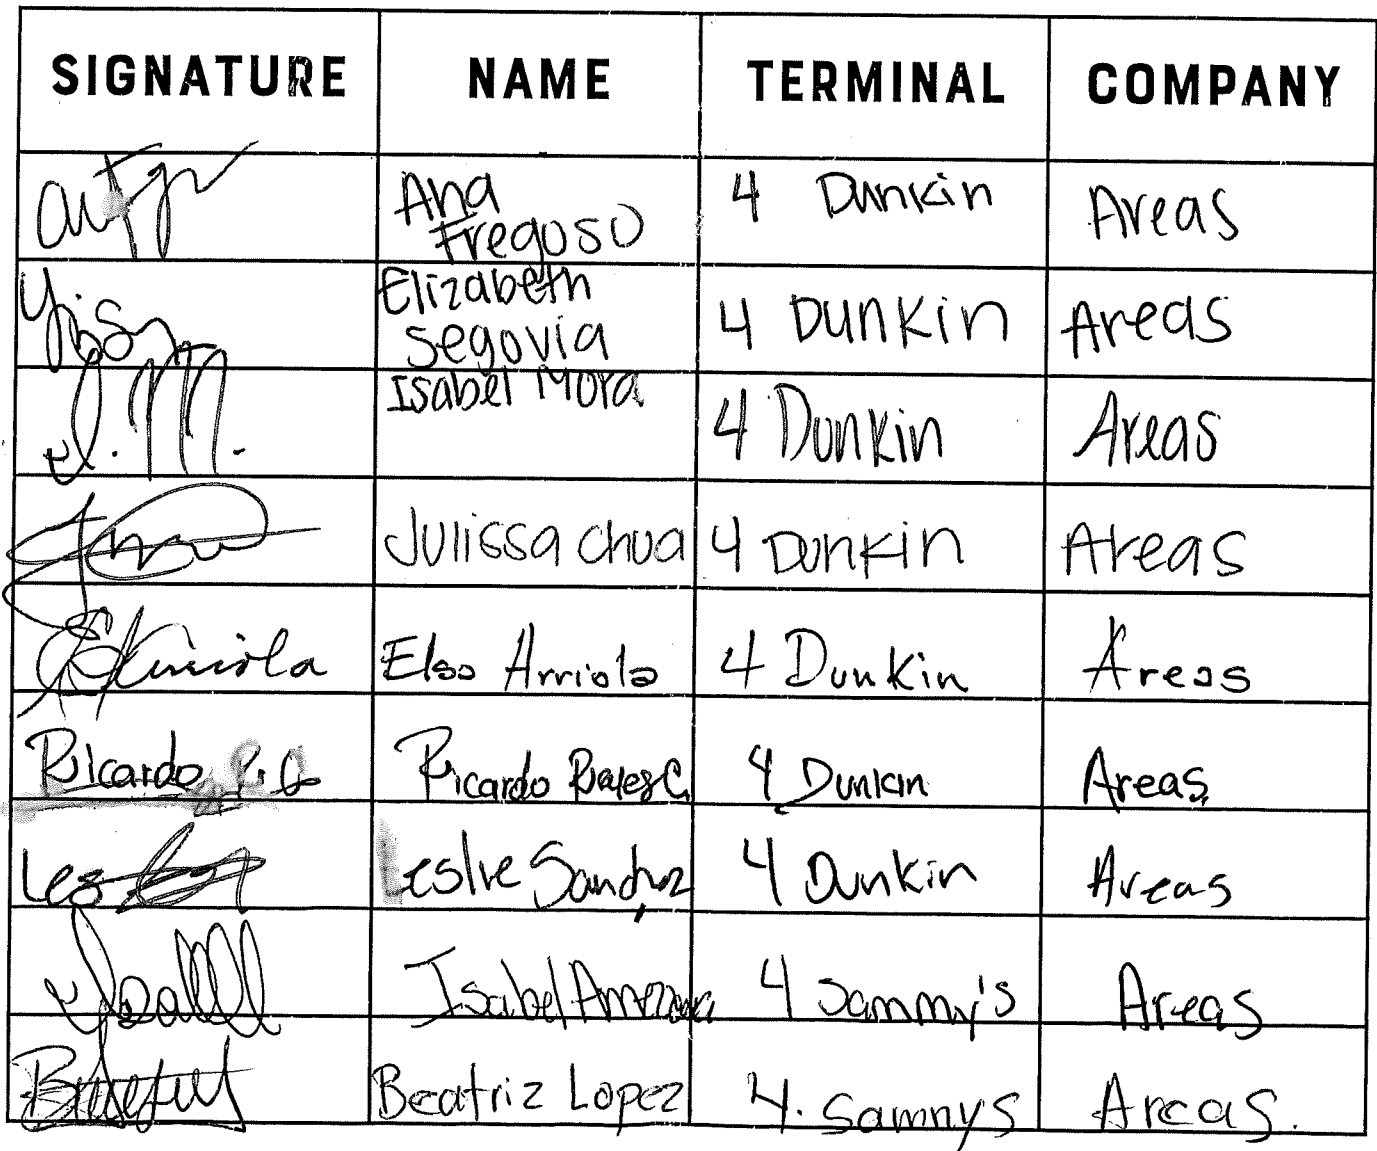 SIGNATURE NAME TERMINAL COMPANY
Ana Fregoso 4 Dunkin Areas
Elizabeth Segovia 4 Dunkin Areas
I. M. Isabel Mora 4 Dunkin Areas
Julissa Chua 4 Dunkin Areas
Elsa Arriola 4 Dunkin Areas
Ricardo R. C. Ricardo C. 4 Dunkin Areas
Les Leslie Sanchez 4 Dunkin Areas
Isabel 4 Sammy's Areas
Beatriz Lopez 4. Sammys Areas.